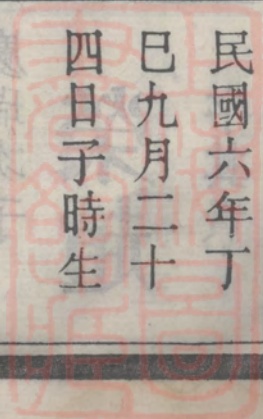 民國六年丁
巳九月二十
四日子時生